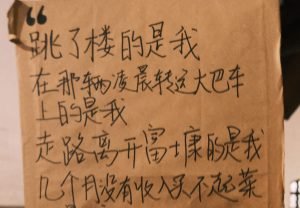 “
跳了楼的是我
在那辆凌晨转运大巴车
上的是我
走路离开富士康的是我
几个月没有收入买不起菜